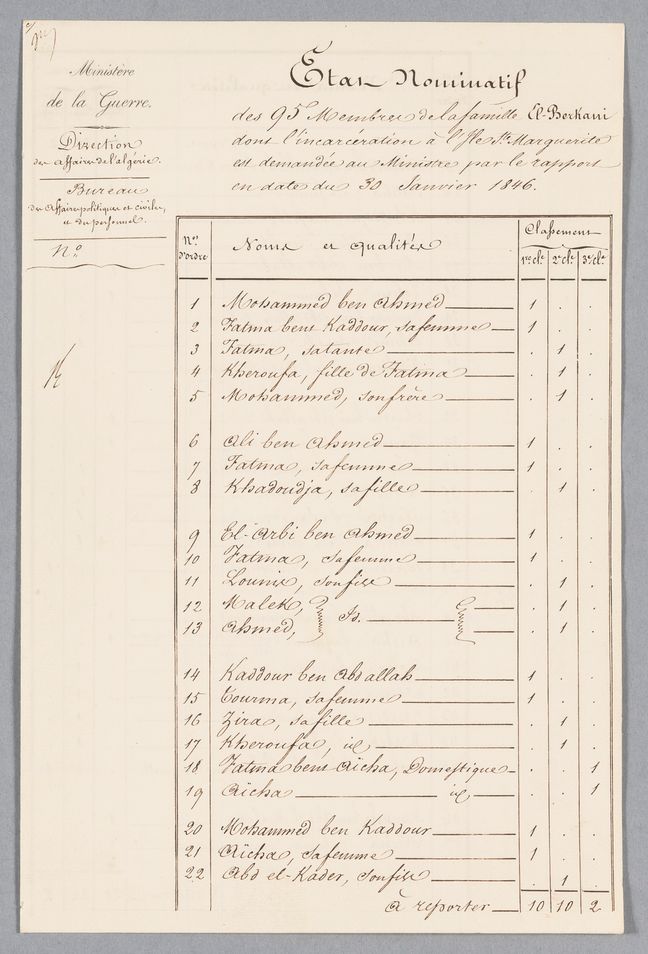 Ministère
de la Guerre.
Direction
des affaires de l'algérie.
Bureau
des Affaires politiques et civiles,
et du personnel.
N.º
Etat Nominatif
des 95 Membres de la famille El-Berkani
dont l'incarcération à l'Ile Ste. Marguerite
est demandée au Ministre par le rapport
en date du 30 Janvier 1846.
N.os d'ordre | Noms et qualités | Classement
1re cle. | 2e cle. | 3e cle.
1 Mohammed ben Ahmed 1 . .
2 Fatma bent Kaddour, sa femme 1 . .
3 Fatma, sa tante . 1 .
4 Kheroufa, fille de Fatma . 1 .
5 Mohammed, son frère . 1 .
6 Ali ben Ahmed 1 . .
7 Fatma, sa femme 1 . .
8 Khadoudja, sa fille . 1 .
9 El-Arbi ben Ahmed 1 . .
10 Fatma, sa femme 1 . .
11 Lounis, son fils . 1 .
12 Malek, . 1 .
Id.
13 Ahmed, . 1 .
14 Kaddour ben Abdallah 1 . .
15 Tourma, sa femme 1 . .
16 Zira, sa fille . 1 .
17 Kheroufa, id . 1 .
18 Fatma bent Aïcha, Domestique . . 1
19 Aïcha id . . 1
20 Mohammed ben Kaddour 1 . .
21 Aïcha, sa femme 1 . .
22 Abd el-Kader, son fils . 1 .
à reporter 10 10 2